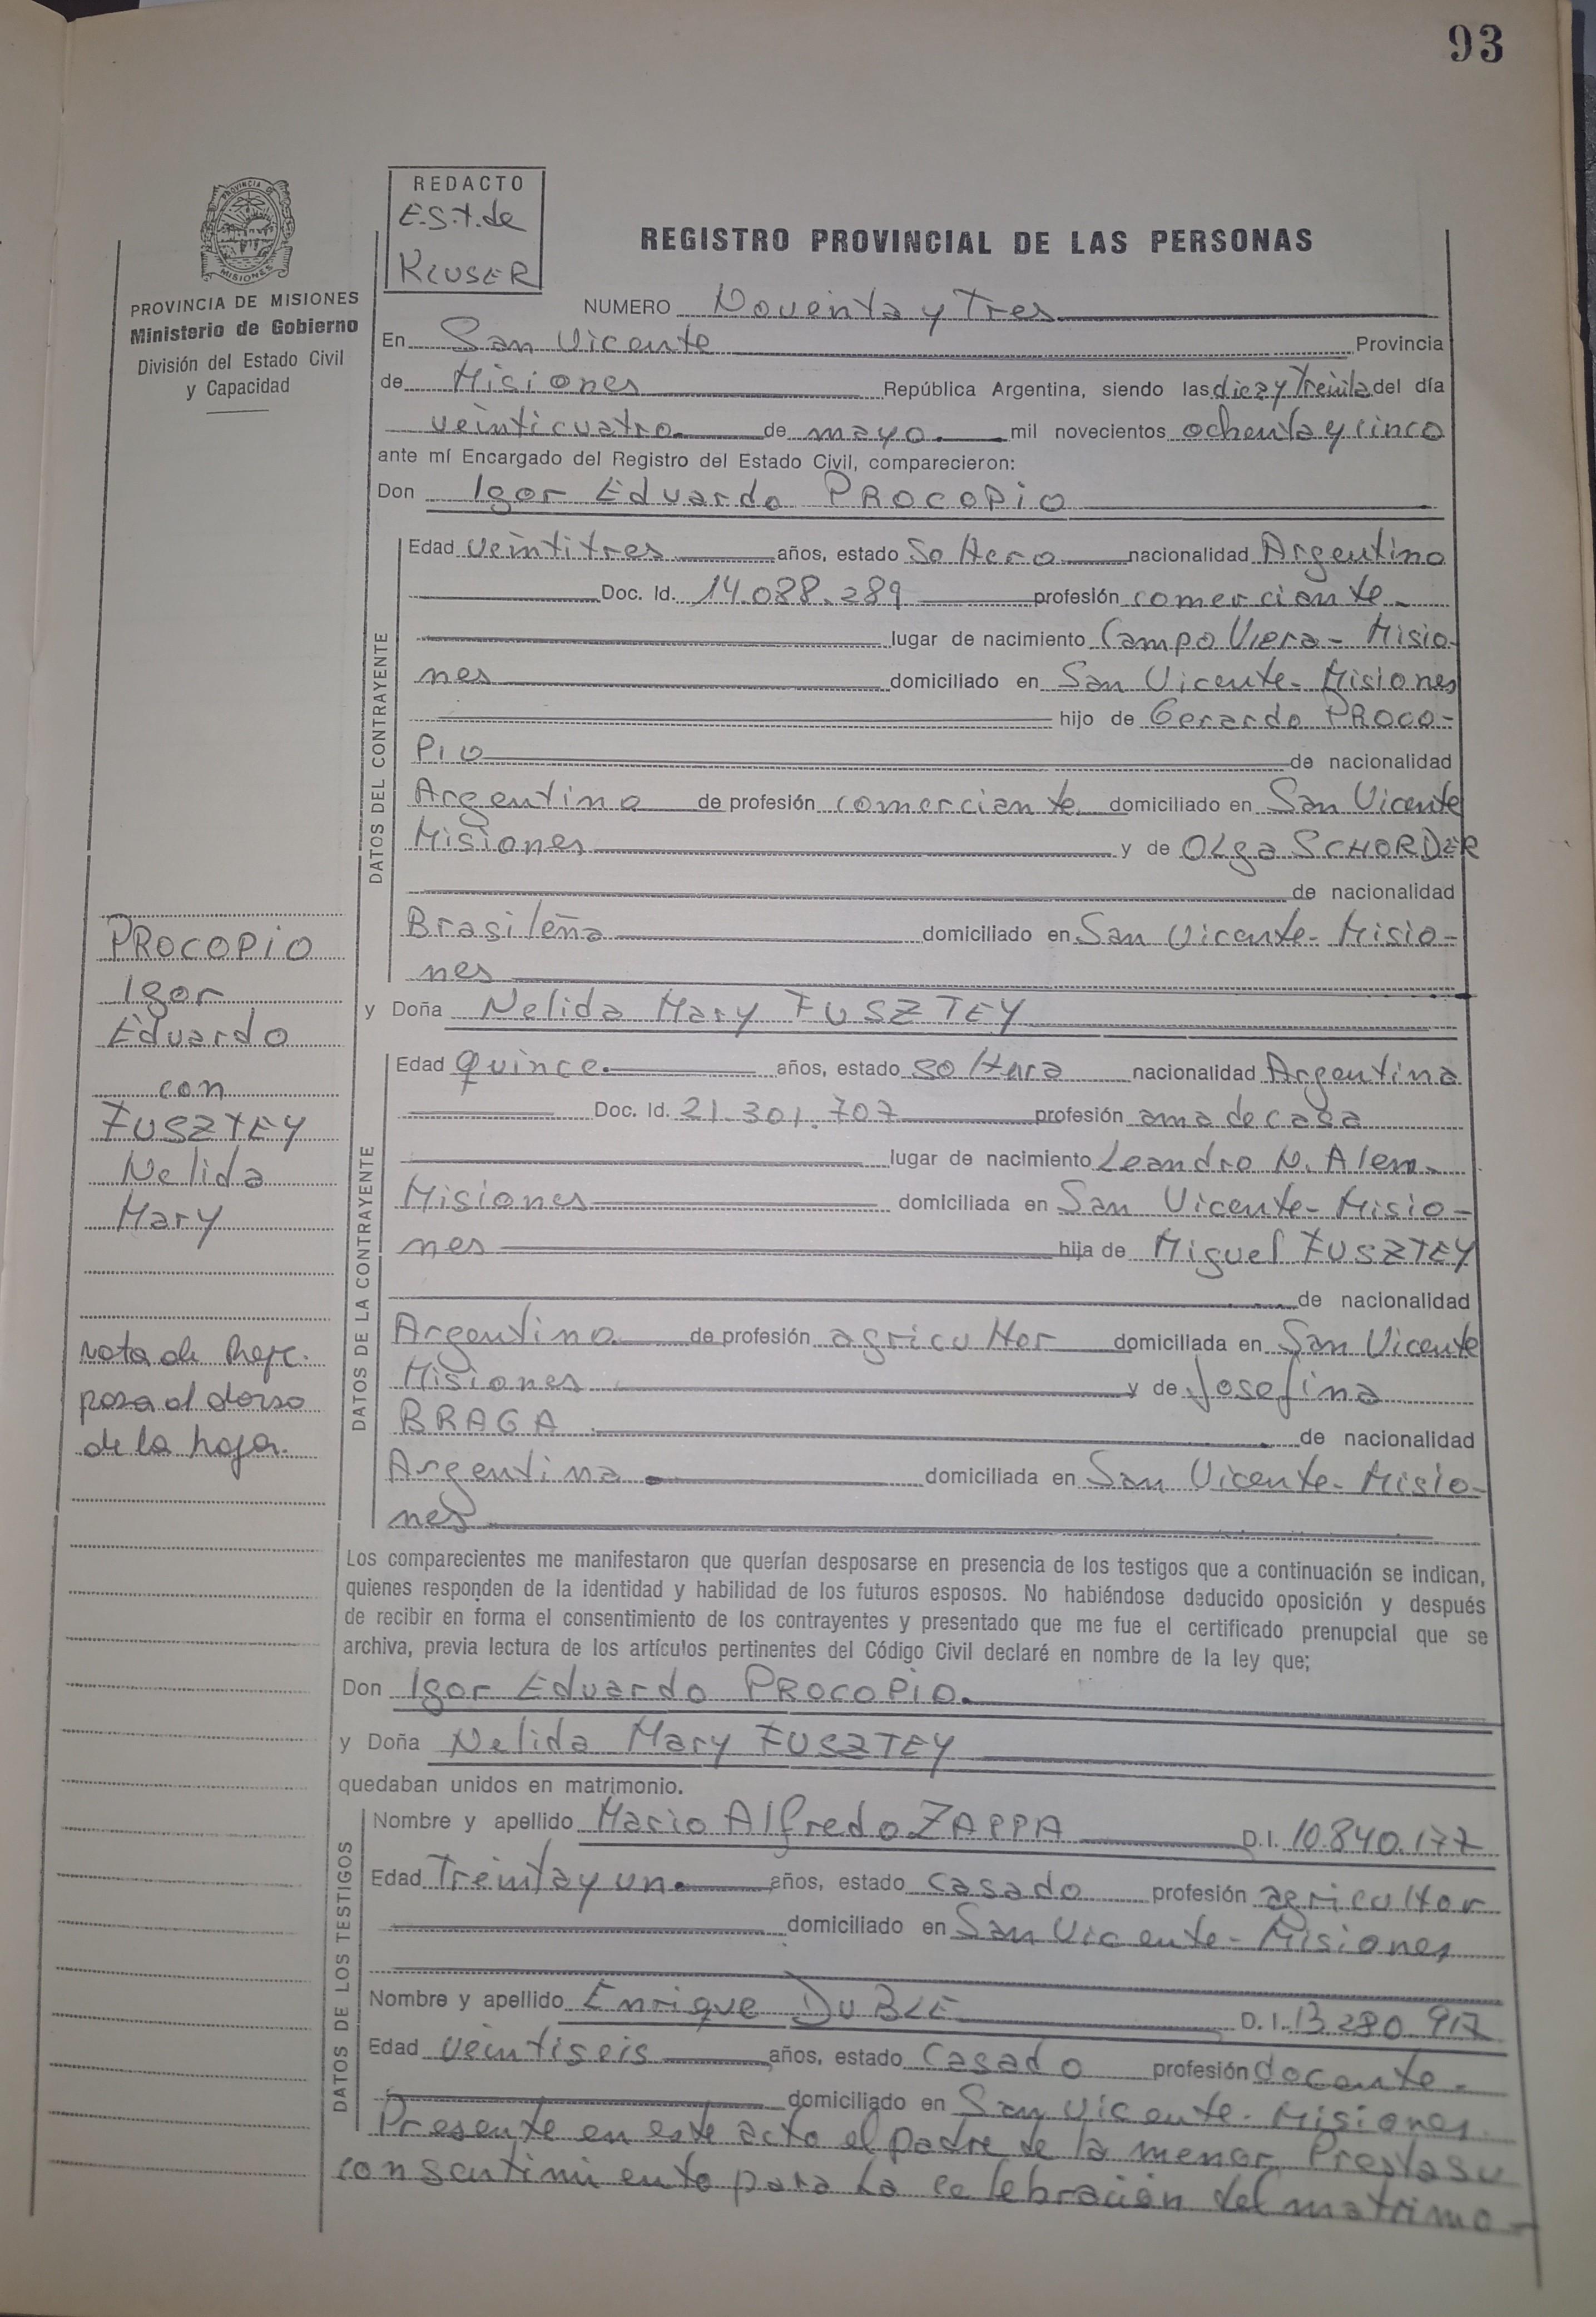 93
REDACTO
E.S.T. de
KLUSER
PROVINCIA DE
MISIONES
PROVINCIA DE MISIONES
Ministerio de Gobierno
División del Estado Civil
y Capacidad
REGISTRO PROVINCIAL DE LAS PERSONAS
NUMERO Noventa y Tres
En San Vicente Provincia
de Misiones República Argentina, siendo las diez y Treinta del día
veinticuatro de mayo mil novecientos ochenta y cinco
ante mí Encargado del Registro del Estado Civil, comparecieron:
Don Igor Eduardo PROCOPIO
DATOS DEL CONTRAYENTE
Edad veintitres años, estado Soltero nacionalidad Argentino
Doc. Id. 14.088.289 profesión comerciante
lugar de nacimiento Campo Viera - Misio-
nes domiciliado en San Vicente - Misiones
hijo de Gerardo PROCO-
PIO de nacionalidad
Argentino de profesión comerciante domiciliado en San Vicente
Misiones y de Olga SCHORDER
de nacionalidad
Brasileña domiciliado en San Vicente - Misio-
nes
y Doña Nelida Mary FUSZTEY
DATOS DE LA CONTRAYENTE
Edad quince. años, estado soltera nacionalidad Argentina
Doc. Id. 21.301.707 profesión ama de casa
lugar de nacimiento Leandro N. Alem-
Misiones domiciliada en San Vicente - Misio-
nes hija de Miguel FUSZTEY
de nacionalidad
Argentino de profesión agricultor domiciliada en San Vicente
Misiones y de Josefina
BRAGA de nacionalidad
Argentina domiciliada en San Vicente - Misio-
nes
PROCOPIO
Igor
Eduardo
con
FUSZTEY
Nelida
Mary
nota de
pasa al dorso
de la hoja.
Los comparecientes me manifestaron que querían desposarse en presencia de los testigos que a continuación se indican,
quienes responden de la identidad y habilidad de los futuros esposos. No habiéndose deducido oposición y después
de recibir en forma el consentimiento de los contrayentes y presentado que me fue el certificado prenupcial que se
archiva, previa lectura de los artículos pertinentes del Código Civil declaré en nombre de la ley que;
Don Igor Eduardo PROCOPIO.
y Doña Nelida Mary FUSZTEY
quedaban unidos en matrimonio.
DATOS DE LOS TESTIGOS
Nombre y apellido Mario Alfredo ZAPPA D.I. 10.840.177
Edad Treinta y un. años, estado casado profesión agricultor
domiciliado en San Vicente - Misiones
Nombre y apellido Enrique DUBLE D.I. 13.280.917
Edad veintiseis años, estado casado profesión docente -
domiciliado en San Vicente - Misiones
Presente en este acto el padre de la menor Presta su
consentimiento para la celebración del matrimo-